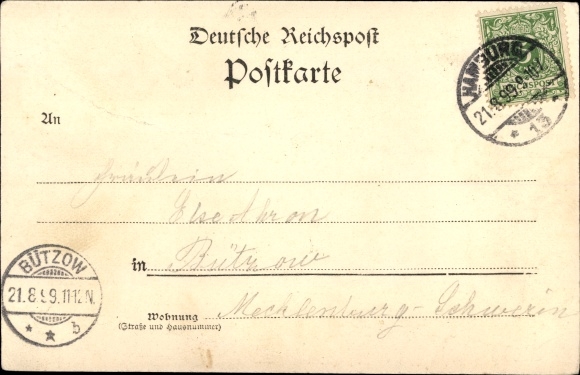 Deutsche Reichspost
Postkarte
HAMBURG
21.8.99.9-10
* 13
5
An
Fräulein
Else
in Bützow
Wohnung Mecklenburg-Schwerin
(Straße und Hausnummer)
BÜTZOW
21.8.99.11-12N.
* * b